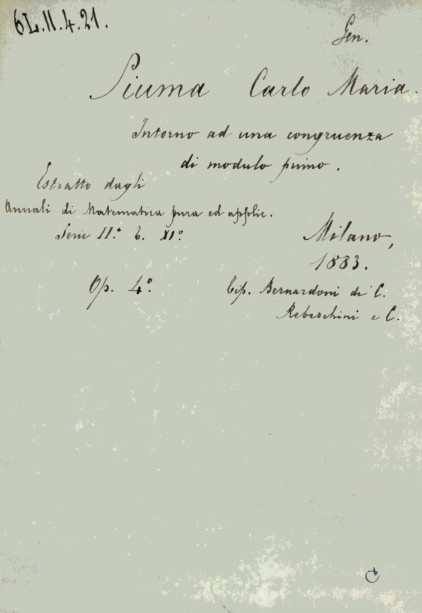 6L.11.4.21.
Gen.
Piuma Carlo Maria.
Intorno ad una congruenza
di modulo primo.
Estratto dagli
Annali di Matematica pura ed applic.
Serie IIª t. XIº
Milano,
1883.
Op. 4º
Tip. Bernardoni di C.
Rebeschini e C.